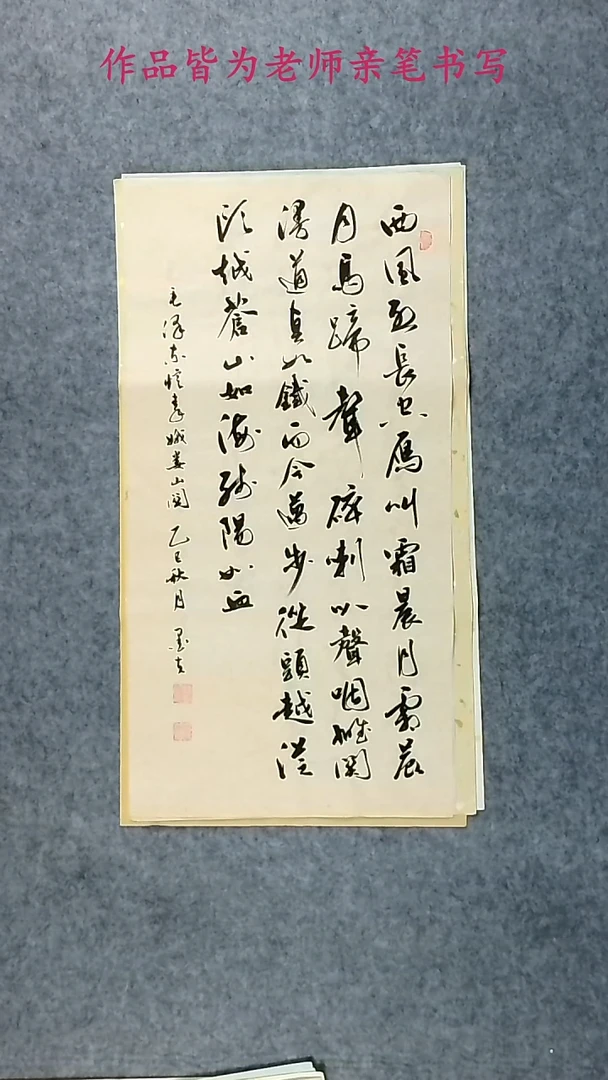 作品皆为老师亲笔书写
西風烈長空雁叫霜晨月霜晨
月馬蹄聲碎喇叭聲咽雄関
漫道真如鐵而今邁步從頭越從
頭越蒼山如海殘陽如血
毛澤東憶秦娥婁山関 乙巳秋月